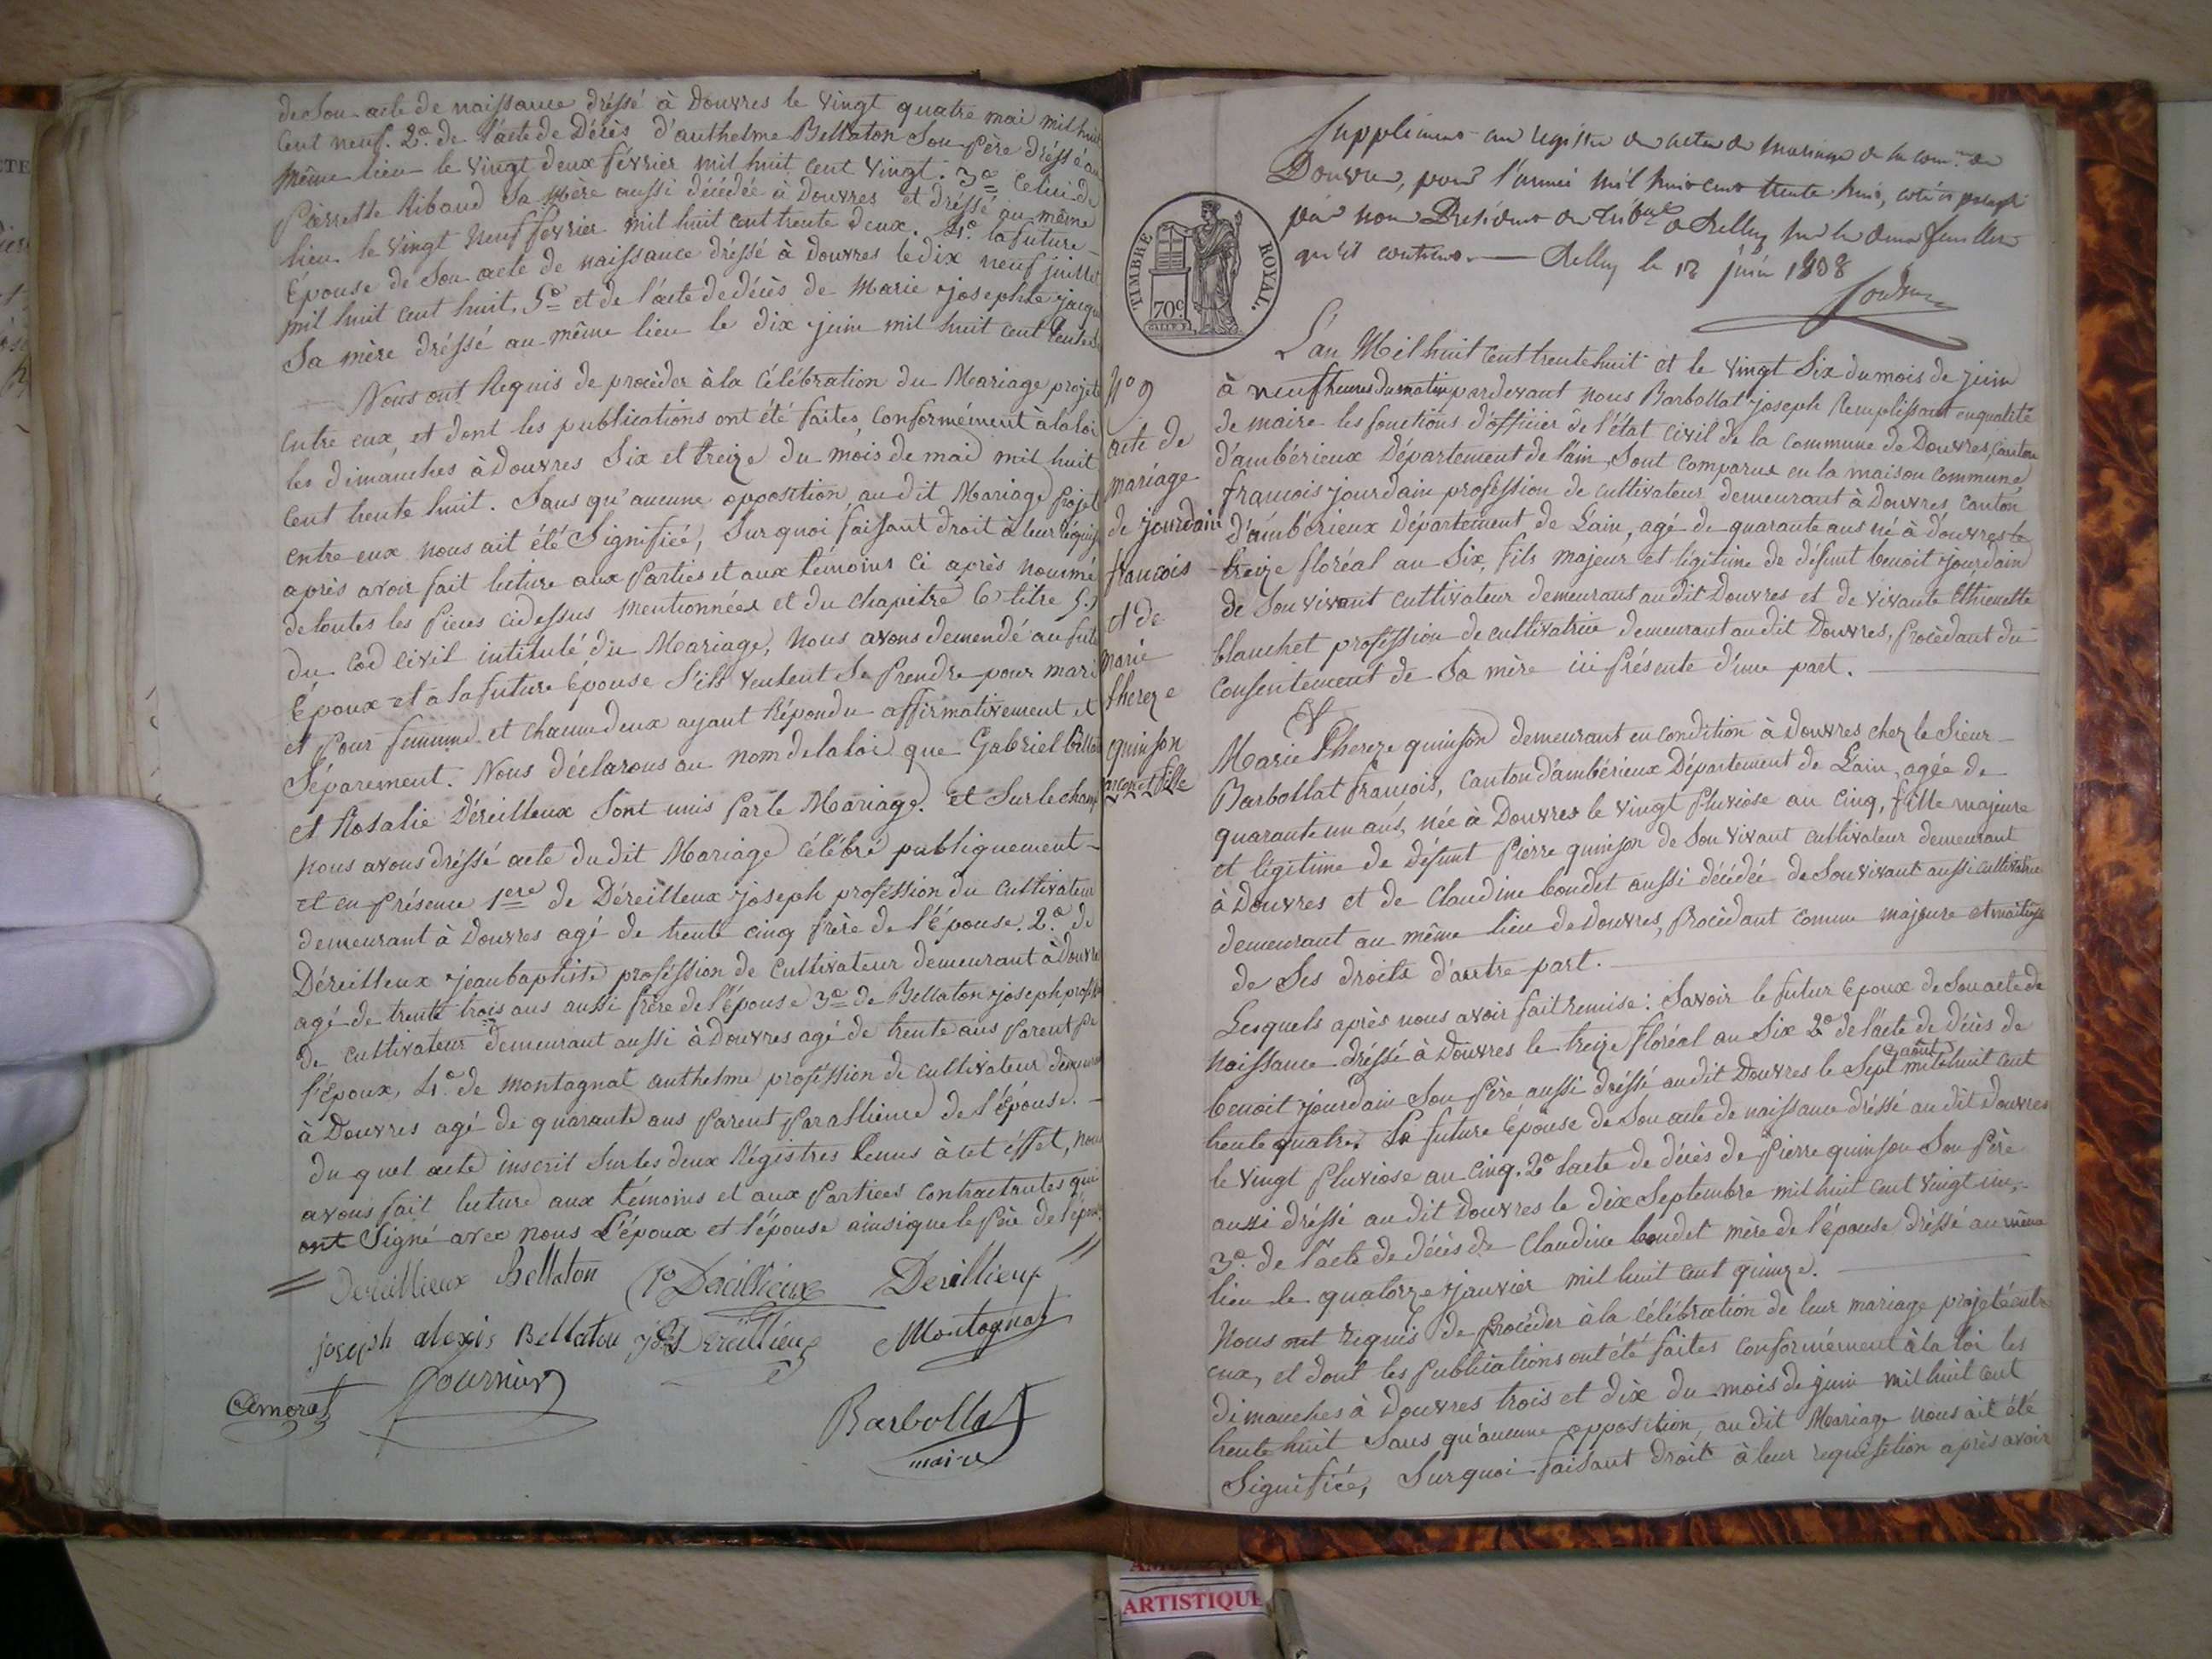 de Son acte de naissance dréssé à Douvres le vingt quatre mai mil huit
Cent neuf. 2.° de l'acte de Décès d'anthelme Bellaton Son Père dréssé au
même lieu le vingt deux février mil huit cent vingt. 3.° Celui de
Pierrette Ribaud Sa Mère aussi décédée à Douvres et dréssé au même
lieu le vingt neuf février mil huit cent trente deux. 4.° la future
Épouse de Son acte de naissance dréssé à Douvres le dix neuf juillet
mil huit cent huit. 5.° et de l'acte de décès de Marie josephte
Sa mère dréssé au même lieu le dix juin mil huit cent
Nous ont Requis de procèder à la Célébration du Mariage projeté
Entre eux, et dont les publications ont été faites, conformément à la loi
les dimanches à Douvres Six et treize du mois de mai mil huit
Cent trente huit. Sans qu'aucune opposition au dit Mariage Projeté
entre eux nous ait été Signifiée, Surquoi faisant droit à leur
après avoir fait lecture aux Parties et aux témoins ci après nommé
de toutes les Pieces cidessus mentionnées et du chapitre 6 titre 5.
du Cod Civil intitulé du Mariage, Nous avons demendé au futur
Époux et a la future Épouse S'ils veulent Se Prendre pour mari
et Pour femme et chacun deux ayant Répondu affirmativement et
Séparement. Nous déclarons au nom de la loi que Gabriel
et Rosalie Déreilleux Sont unis Par le Mariage. et Sur le champ
nous avons dréssé acte du dit Mariage célébré publiquement
et en Présence 1ere de Déreilleux joseph proféssion du Cultivateur
demeurant à Douvres agé de trente cinq frère de l'Épouse. 2.° de
Déreilleux jean baptiste proféssion de Cultivateur demeurant à Douvres
agé de trente trois ans aussi frère de l'Épouse 3.° de Bellaton joseph,
de Cultivateur demeurant aussi à Douvres agé de trente ans Parent de
l'Époux, 4.° de Montagnat anthelme proféssion de cultivateur
à Douvres agé de quarante ans Parent Par allience de l'Épouse.
du quel acte inscrit Sur les deux Régistres tenus à cet éffet, nous
avons fait lecture aux témoins et aux Parties contractantes qui
ont Signé avec nous L'époux et l'épouse ainsi que le Père de
Bellaton Dereillieux Dereillieux
joseph alexis Bellaton Montagnat
Fournier
Amorat
Barbollat
maire
Douvres, pour l'année mil huit cent trente huit,
1838
TIMBRE ROYAL.
70c
L'an Mil huit Cent trente huit et le vingt Six du mois de juin
à neuf heures du matin pardevant nous Barbollat joseph Remplissant en qualité
de maire les fonctions d'officier de l'état civil de la commune de Douvres, canton
d'ambérieux Département de l'ain, Sont comparue en la maison commune,
francois jourdain proféssion de cultivateur demeurant à Douvres canton
d'ambérieux Département de l'ain, agé de quarante ans né à Douvres le
treize floréal an Six, fils majeur et légitime de défunt benoit jourdain
de Son vivant cultivateur demeurant au dit Douvres et de vivante Ethienette
blanchet proféssion de cultivatrice demeurant au dit Douvres, Procèdant du
Consentement de Sa mère ici Présente d'une part.
N° 9
acte de
mariage
de jourdain
francois
et de
marie
thereze
quinson
garçon et fille
&
Marie thereze quinson demeurant en condition à Douvres chez le Sieur
Barbollat francois, Canton d'ambérieux Département de L'ain, agée de
quarante un ans, née à Douvres le vingt Pluviose an Cinq, fille majeure
et légitime de Défunt Pierre quinson de Son vivant cultivateur demeurant
à Douvres et de Claudine boudet aussi décédée de Son vivant aussi cultivatrice
demeurant au même lieu de Douvres, Procèdant comme majeure et maitresse
de Ses droits d'autre part.
Lesquels après nous avoir fait remise: Savoir le futur Epoux de Son acte de
naissance dréssé à Douvres le treize floréal an Six 2.° de l'acte de décès de
benoit jourdain Son Père aussi dréssé au dit Douvres le Sept août mil huit cent
trente quatre. La future Épouse de Son acte de naissance dréssé au dit Douvres
le vingt Pluviose an Cinq. 2.° l'acte de décès de Pierre quinson Son Père
aussi dréssé au dit Douvres le dix Septembre mil huit cent vingt un,
3.° de l'acte de décès de Claudine boudet mère de l'épouse dréssé au même
lieu le quatorze janvier mil huit cent quinze.
Nous ont requis de Procéder à la célébration de leur mariage projeté entre
eux, et dont les Publications ont été faites conformément à la loi les
dimanches à Douvres trois et dix du mois de juin mil huit cent
trente huit Sans qu'aucune opposition, au dit Mariage nous ait été
Signifiée, Surquoi faisant droit à leur requisition après avoir
ARTISTIQUE